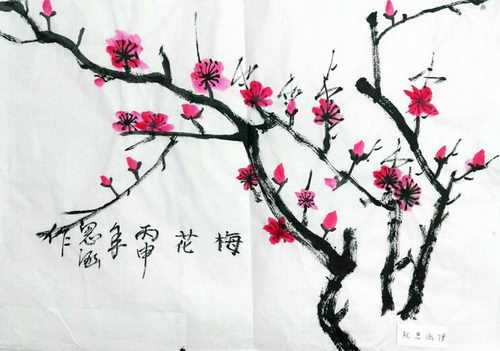 梅花丙申年思涵作
思涵